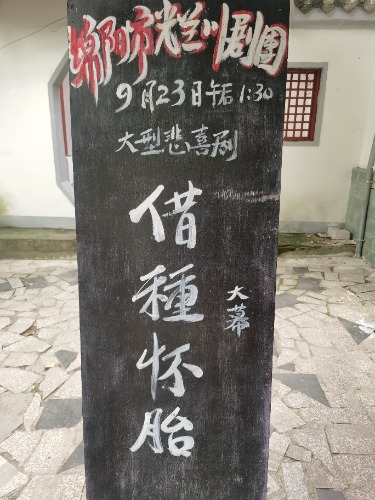 绵阳市光兰川剧团
9月23日午后1:30
大型悲喜剧
借種怀胎
大幕